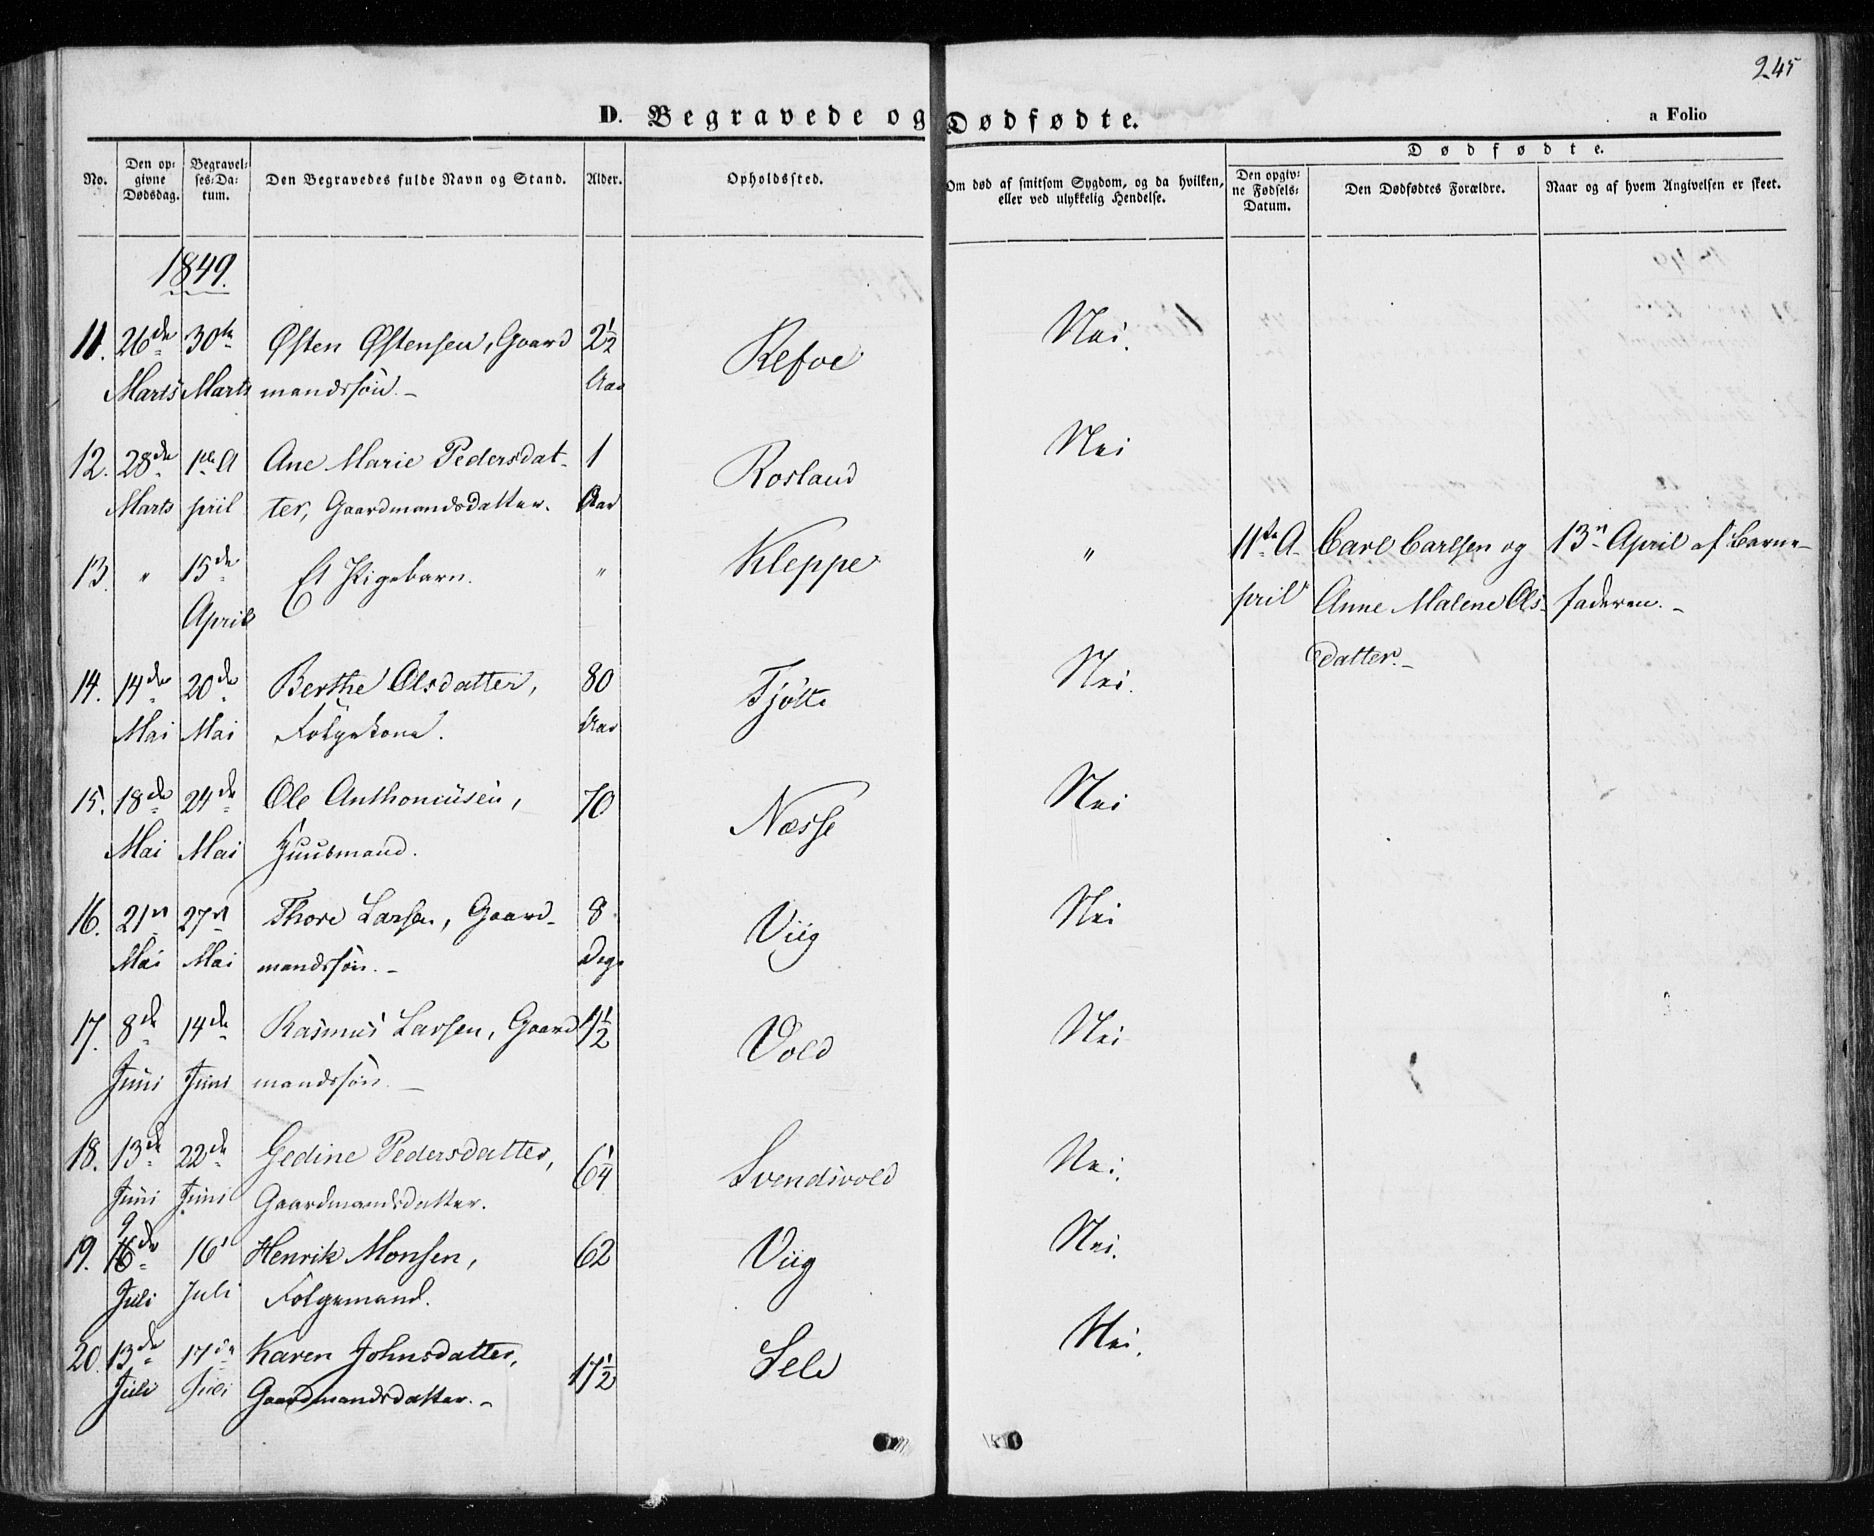 245
D. Begravede og Dødfødte.
a Folio
Dødfødte.
No. Den opgivne Dødsdag. Begravelses-Datum. Den Begravedes fulde Navn og Stand. Alder. Opholdssted. Om død af smitsom Sygdom, og da hvilken, eller ved ulykkelig Hendelse. Den opgivne Fødsels-Datum. Den Dødfødtes Forældre. Naar og af hvem Angivelsen er skeet.
1849.
11. 26de 30te Østen Østensen, Gaard 2½ Refve Nei.
Marts Marts mandssøn. - Aar
12. 28de 1ste A Ane Marie Pedersdat- 1 Rosland Nei
Marts pril ter, Gaardmandsdatter. Aar
13. " 15de Et Pigebarn. " Kleppe " 11te A- Carl Carlsen og 13n April af Barne-
April pril Anne Malene Ols- faderen. -
datter. -
14. 14de 20de Berthe Olsdatter, 80 Tjötte Nei.
Mai Mai Folgekone. Aar
15. 18de 24de Ole Anthoniusen, 70 Næsse Nei
Mai Mai Huusmand.
16. 21n 27n Thore Larsen, Gaard- 8 Viig Nei
Mai Mai mandssön. - Dage
17. 8de 14de Rasmus Larsen, Gaard 1½ Vold Nei
Juni Juni mandssön. -
18. 13de 22de Gedine Pedersdatter, 6¼ Svendsvold Nei.
Juni Juni Gaardmandsdatter.
9
19. 16de 16 Henrik Monsen, 62 Viig Nei.
Juli Juli Folgemand.
20. 13de 17de Karen Johnsdatter, 17½ Sele Nei.
Juli Juli Gaardmandsdatter. -